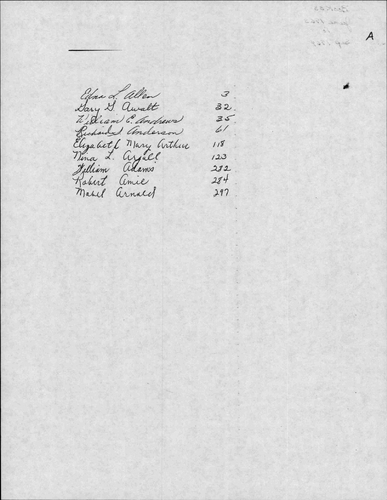 A
Edna L. Allen 3
Gary G. Awalt 32
William E. Andrews 35
Richard Anderson 61
Elizabeth Mary Arthur 118
Nina L. Argall 123
William Adams 282
Robert Amie 284
Mabel Arnold 297